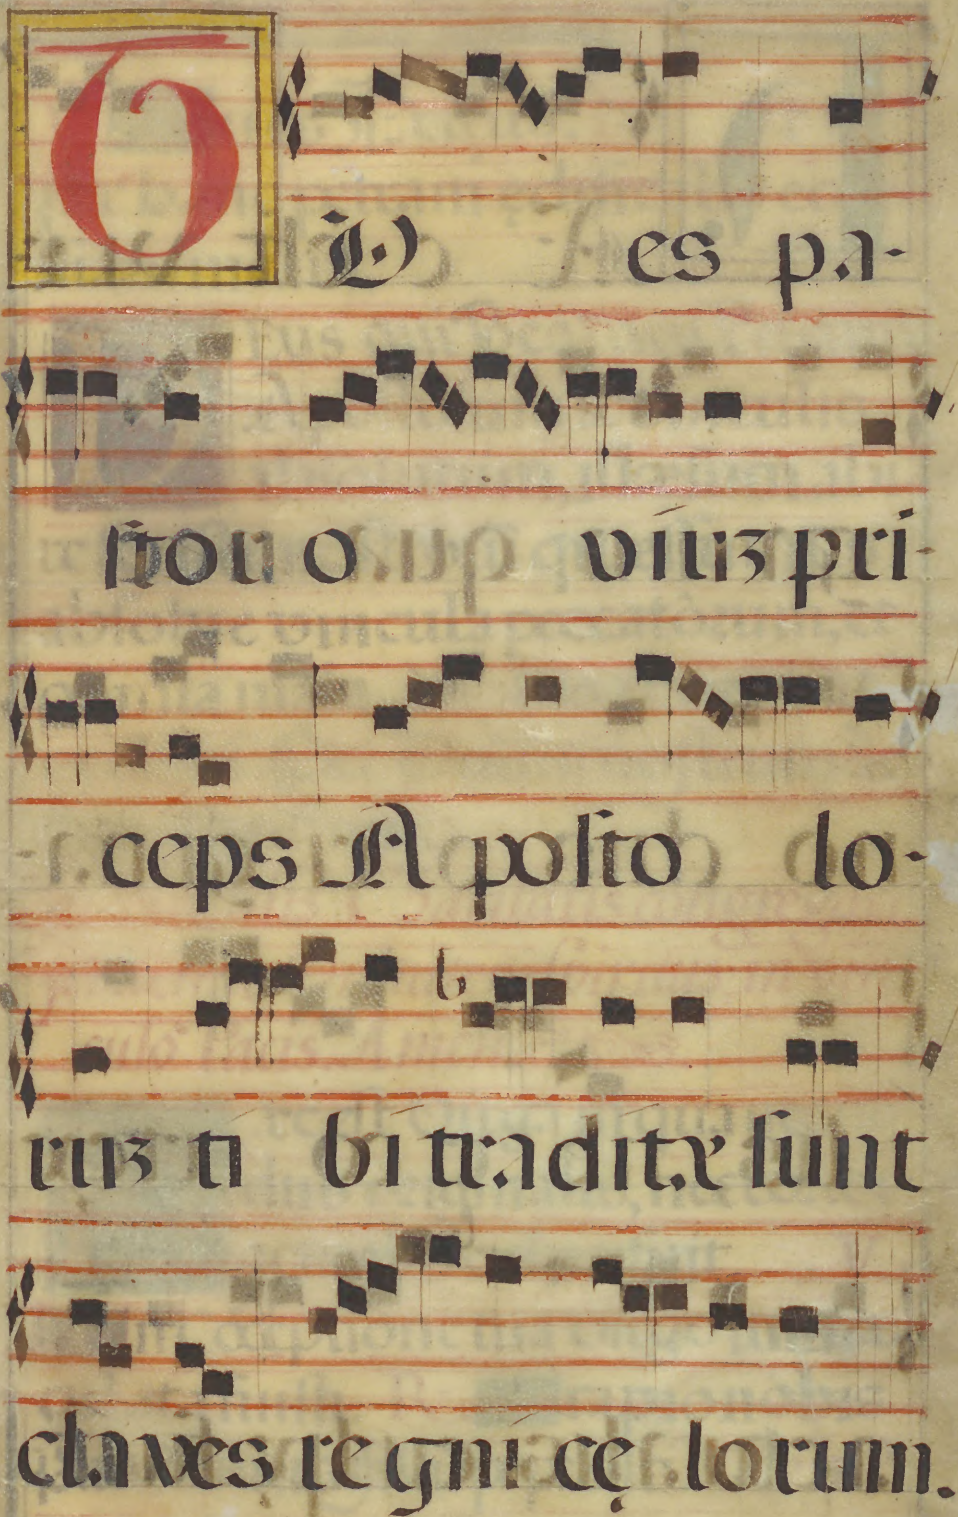 TV es pa-
ſtor o viuʒ pri-
ceps A poſto lo-
ruʒ ti bi traditæ ſunt
claves regni cę lorum.